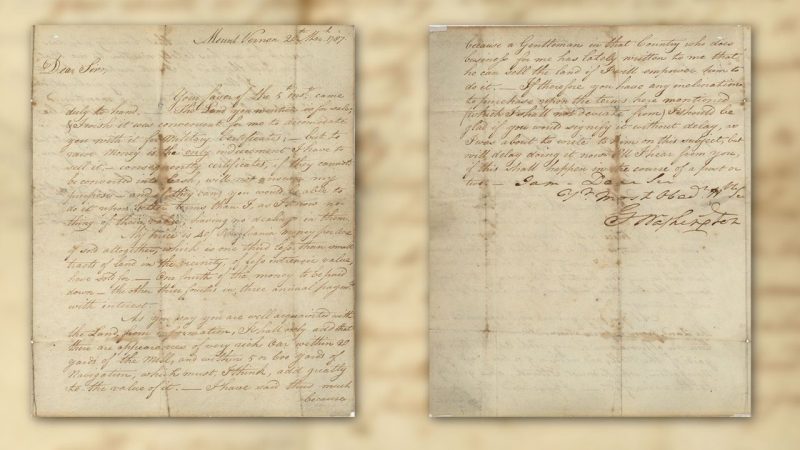 Mount Vernon 20th Mar. 1787
Dear Sir,
Your favor of the 5th Inst. came
duly to hand. The Land you mention is for sale,
& I wish it was convenient for me to accomodate
you with it for Military Certificates; but to
raise money is the only inducement I have to
sell it. consequently certificates, if they cannot
be converted into Cash, will not answer my
purpose and if they can, you would be able to
do it upon better terms than I, as I know no-
thing of their value, having no dealings in them.
My price is 40/ Pensylvania money per Acre
if sold altogether, which is one third less than small
tracts of Land in the vicinity, of less intrinsic value,
have sold for. One fourth of the money to be paid
down the other three fourths in three annual paymts.
with interest.
As you say you are well acquainted with
the Land, from information, I shall only add that
there are appearances of very rich Oar within 20
yards of the Mill, and within 5 or 600 yards of
Navigation, which must, I think, add greatly
to the value of it. I have said thus much
because
because a Gentleman in that Country who does
business for me has lately written to me that
he can sell the land if I will empower him to
do it. If therefore you have any inclination
to purchase upon the terms here mentioned
(which I shall not deviate from) I should be
glad if you would signify it without delay, as
I was about to write to him on this subject, but
will delay doing it now till I hear from you,
if this shall happen in the course of a post or
two. I am Dear Sir
Yr. Most Obed. Hble Se
G Washington